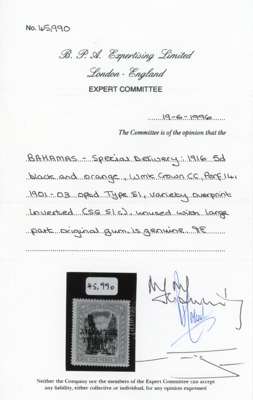 No. 45,990
B. P. A. Expertising Limited
London - England
EXPERT COMMITTEE
19-6-1996
The Committee is of the opinion that the
BAHAMAS - Special Delivery: 1916 5d
black and orange, Wmk Crown CC, Perf 14,
1901-03 optd Type S1, variety overprint
inverted (SG S1c), unused with large
part original gum, is genuine.
45,990
Neither the Company nor the members of the Expert Committee can accept
any liability, either collective or individual, for any opinion expressed